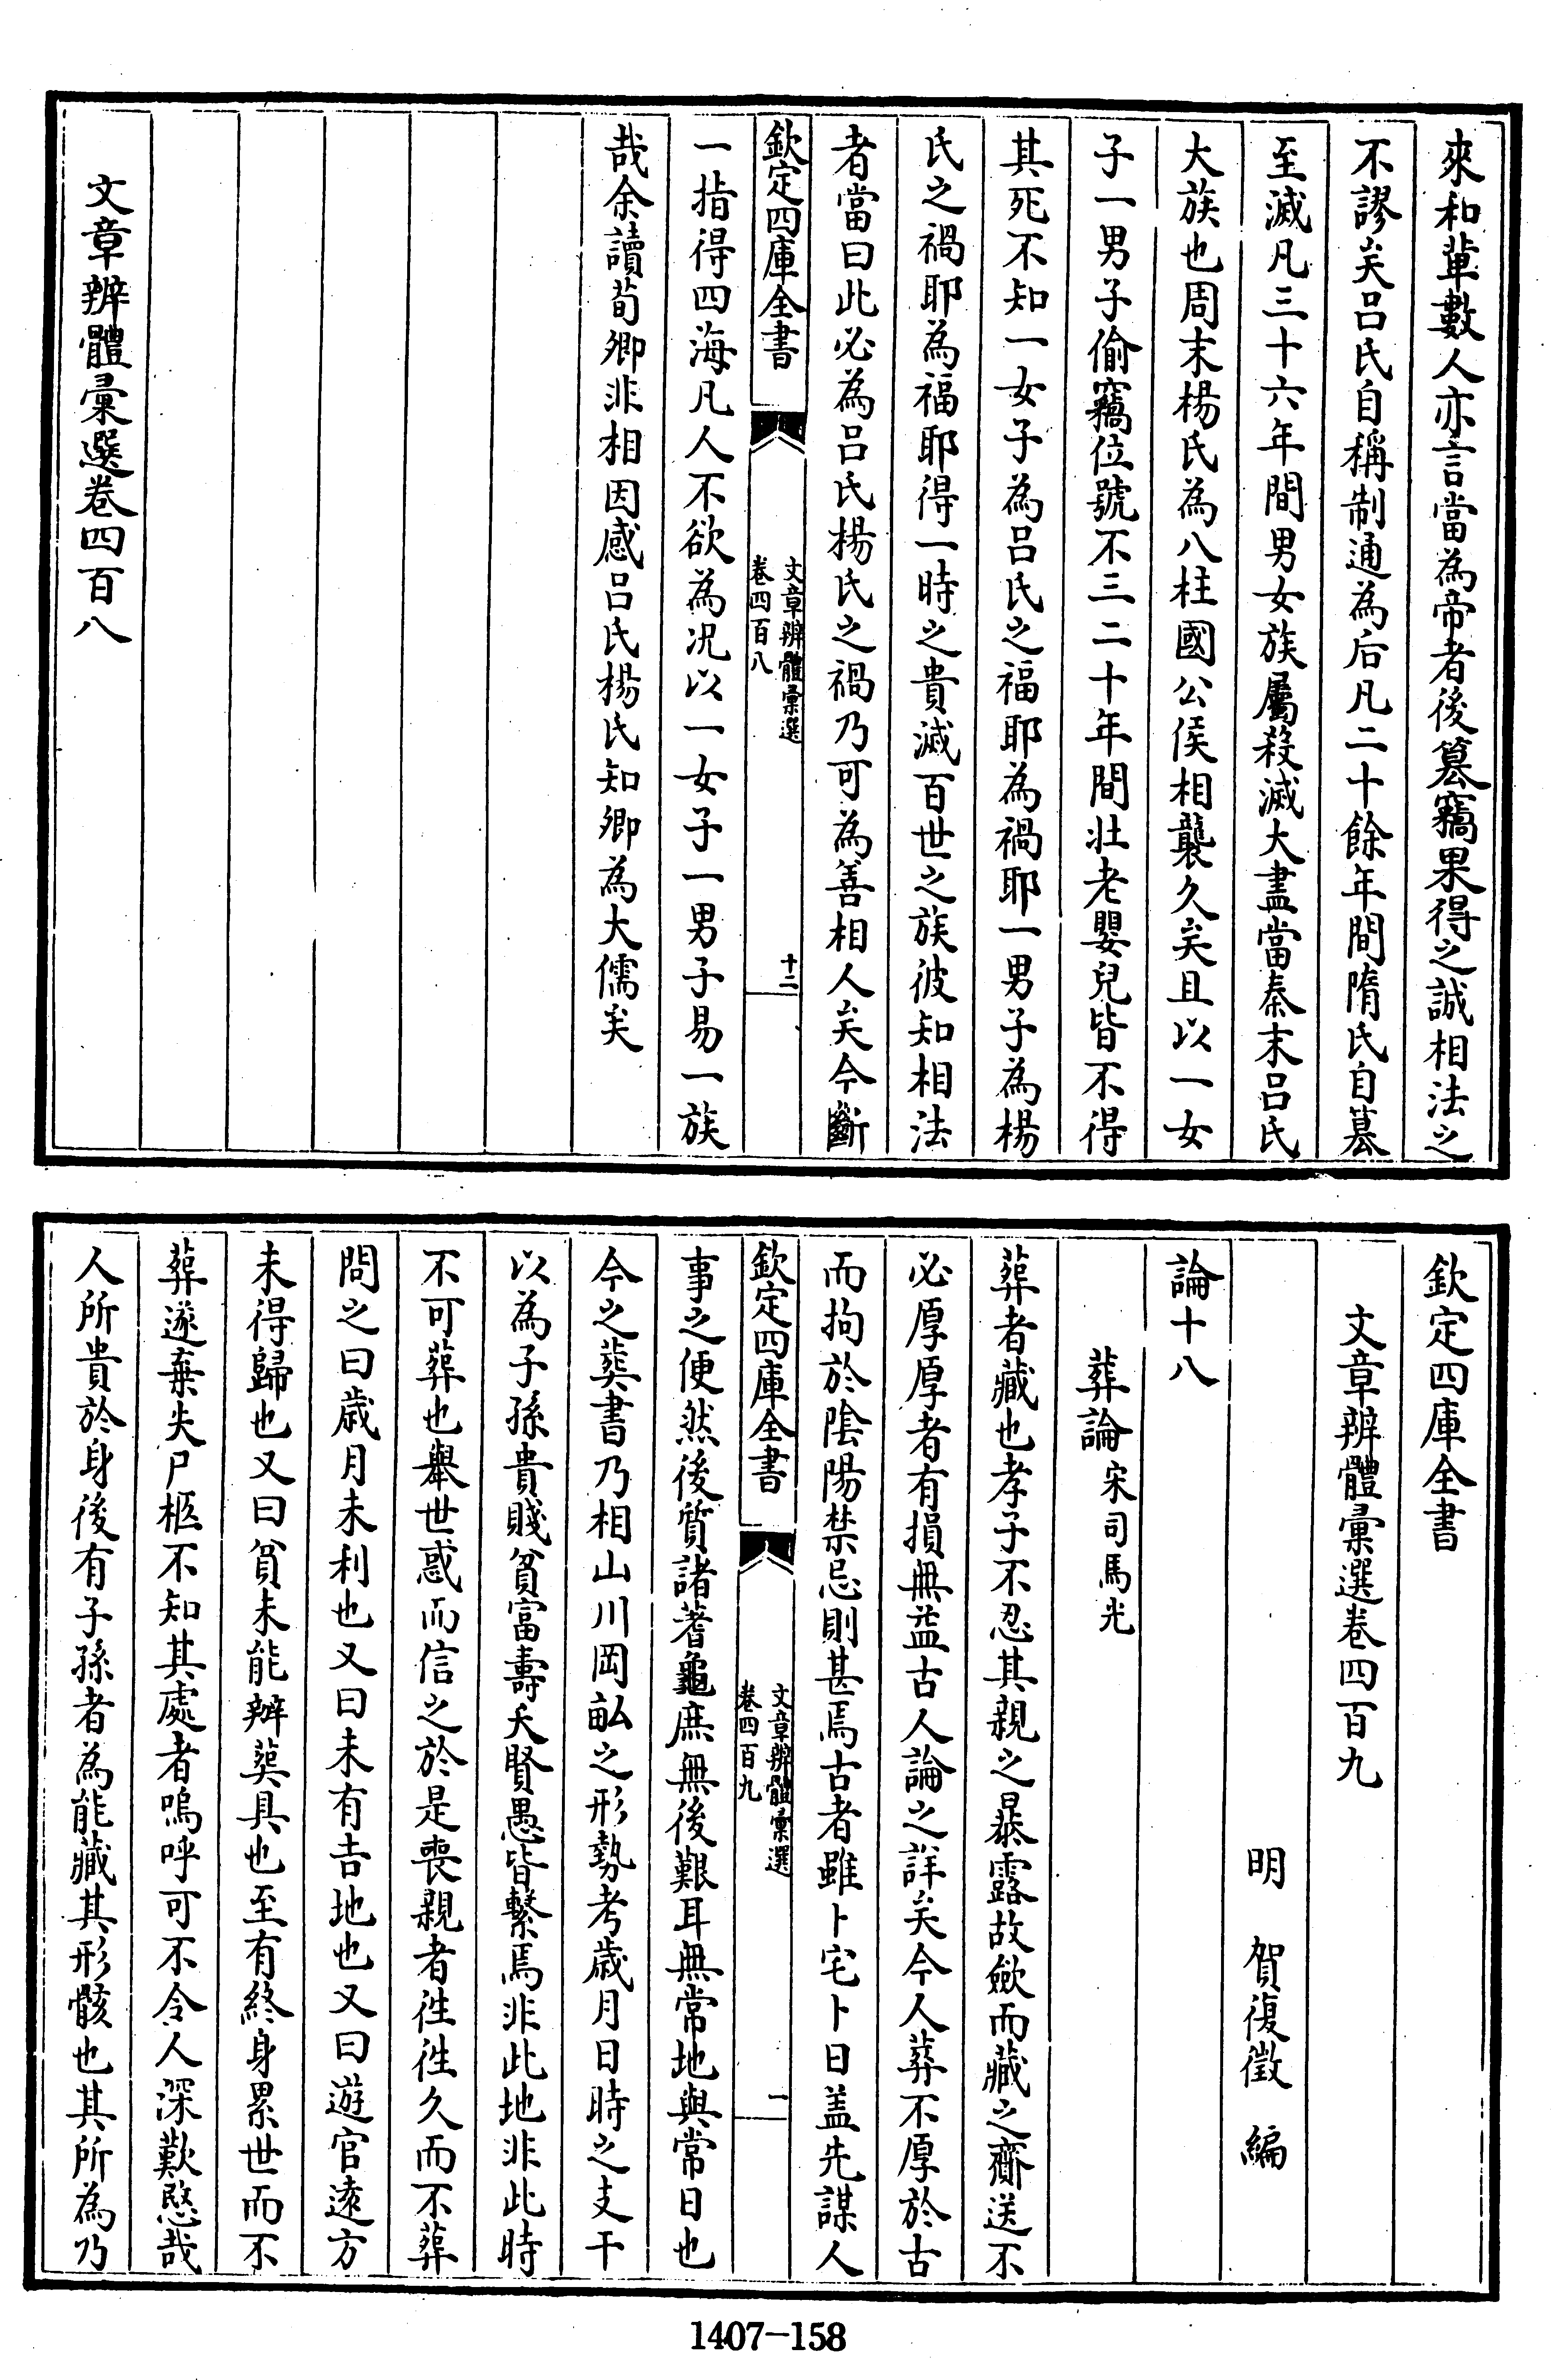 來和輩數人亦言當為帝者後篡竊果得之誠相法之
不謬矣吕氏自稱制通為后凡二十餘年間隋氏自篡
至滅凡三十六年間男女族屬殺滅大盡當秦末吕氏
大族也周末楊氏為八柱國公侯相襲久矣且以一女
子一男子偷竊位號不三二十年間壯老嬰兒皆不得
其死不知一女子為吕氏之福耶為禍耶一男子為楊
氏之禍耶為福耶得一時之貴滅百世之族彼知相法
者當曰此必為吕氏楊氏之禍乃可為善相人矣今斷
欽定四庫全書
文章辨體彙選
卷四百八
十二
一指得四海凡人不欲為况以一女子一男子易一族
哉余讀荀卿非相因感吕氏楊氏知卿為大儒矣
文章辨體彙選卷四百八
欽定四庫全書
文章辨體彙選卷四百九
明 賀復徵 編
論十八
葬論宋司馬光
葬者藏也孝子不忍其親之暴露故斂而藏之齎送不
必厚厚者有損無益古人論之詳矣今人葬不厚於古
而拘於陰陽禁忌則甚焉古者雖卜宅卜日盖先謀人
欽定四庫全書
文章辨體彙選
卷四百九
一
事之便然後質諸蓍龜庶無後艱耳無常地與常日也
今之葬書乃相山川岡畝之形勢考歲月日時之支干
以為子孫貴賤貧富壽夭賢愚皆繫焉非此地非此時
不可葬也舉世惑而信之於是喪親者徃徃久而不葬
問之曰歲月未利也又曰未有吉地也又曰遊官遠方
未得歸也又曰貧未能辦葬具也至有終身累世而不
葬遂棄失尸柩不知其處者嗚呼可不令人深歎愍哉
人所貴於身後有子孫者為能藏其形骸也其所為乃
1407-158